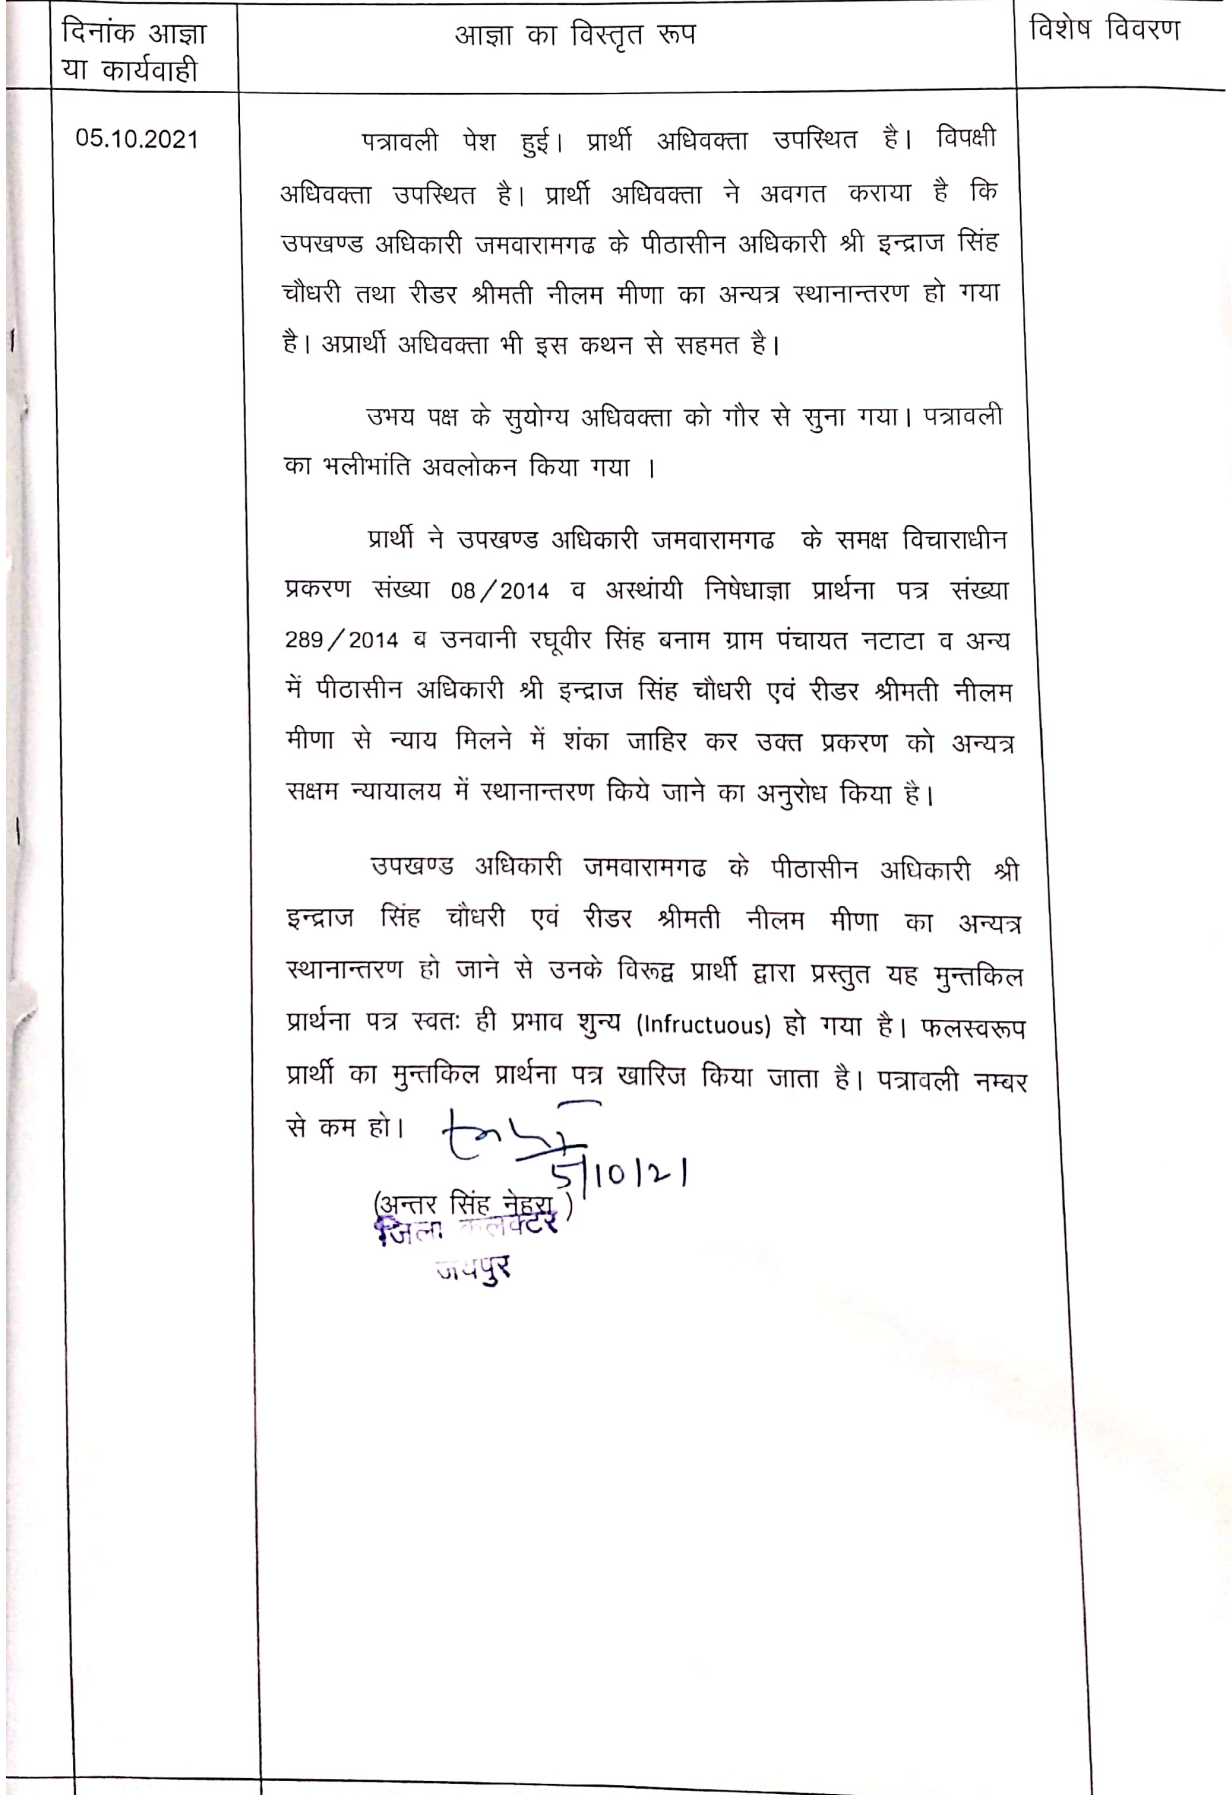 दिनांक आज्ञा
या कार्यवाही
आज्ञा का विस्तृत रूप
विशेष विवरण
05.10.2021
पत्रावली पेश हुई। प्रार्थी अधिवक्ता उपस्थित है। विपक्षी
अधिवक्ता उपस्थित है। प्रार्थी अधिवक्ता ने अवगत कराया है कि
उपखण्ड अधिकारी जमवारामगढ के पीठासीन अधिकारी श्री इन्द्राज सिंह
चौधरी तथा रीडर श्रीमती नीलम मीणा का अन्यत्र स्थानान्तरण हो गया
है। अप्रार्थी अधिवक्ता भी इस कथन से सहमत है।
उभय पक्ष के सुयोग्य अधिवक्ता को गौर से सुना गया। पत्रावली
का भलीभांति अवलोकन किया गया ।
प्रार्थी ने उपखण्ड अधिकारी जमवारामगढ के समक्ष विचाराधीन
प्रकरण संख्या 08/2014 व अस्थांयी निषेधाज्ञा प्रार्थना पत्र संख्या
289/2014 ब उनवानी रघूवीर सिंह बनाम ग्राम पंचायत नटाटा व अन्य
में पीठासीन अधिकारी श्री इन्द्राज सिंह चौधरी एवं रीडर श्रीमती नीलम
मीणा से न्याय मिलने में शंका जाहिर कर उक्त प्रकरण को अन्यत्र
सक्षम न्यायालय में स्थानान्तरण किये जाने का अनुरोध किया है।
उपखण्ड अधिकारी जमवारामगढ के पीठासीन अधिकारी श्री
इन्द्राज सिंह चौधरी एवं रीडर श्रीमती नीलम मीणा का अन्यत्र
स्थानान्तरण हो जाने से उनके विरूद्व प्रार्थी द्वारा प्रस्तुत यह मुन्तकिल
प्रार्थना पत्र स्वतः ही प्रभाव शुन्य (Infructuous) हो गया है। फलस्वरूप
प्रार्थी का मुन्तकिल प्रार्थना पत्र खारिज किया जाता है। पत्रावली नम्बर
से कम हो।
5/10/21
(अन्तर सिंह नेहरा )
जिला कलक्टर
जयपुर